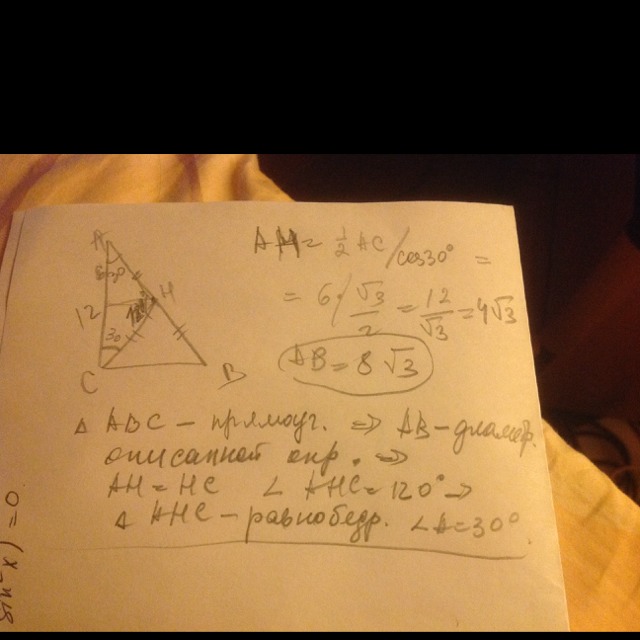 A
30°
H
12
30
C
B
AH = 1/2 AC / cos30° =
= 6 / √3/2 = 12/√3 = 4√3
AB = 8√3
△ ABC - прямоуг. => AB - диаметр.
описанной окр. =>
AH = HC ∠ AHC = 120° =>
△ AHC - равнобедр. ∠A = 30°
sin² x) = 0